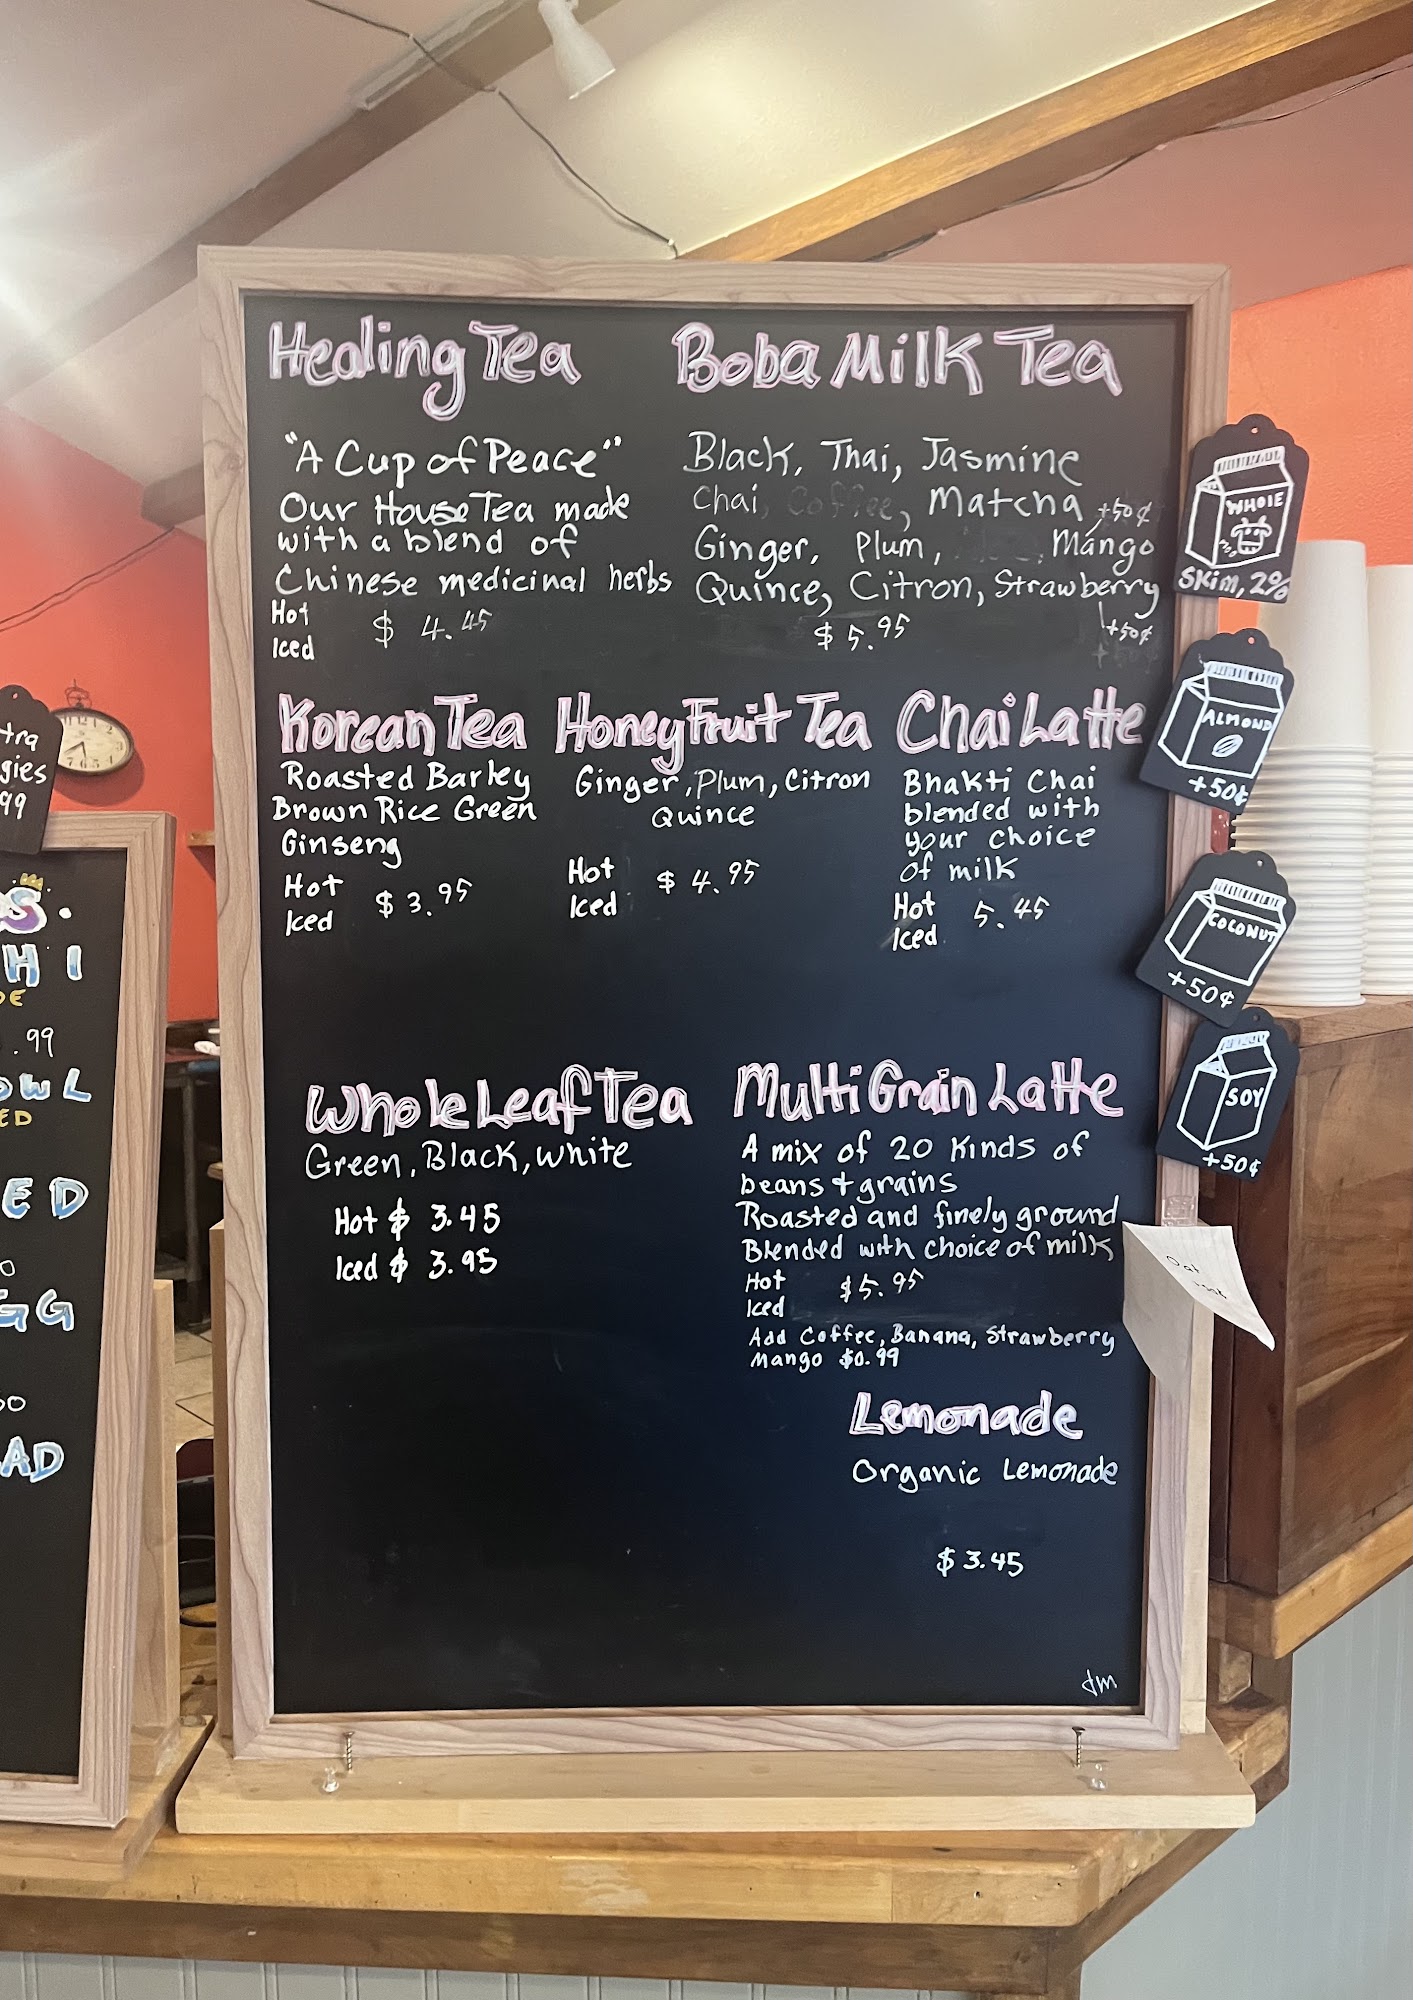 Healing Tea
"A Cup of Peace"
Our House Tea made
with a blend of
Chinese medicinal herbs
Hot
Iced
$ 4.45
Boba Milk Tea
Black, Thai, Jasmine
Chai, Coffee, Matcha +50¢
Ginger, Plum, Mango
Quince, Citron, Strawberry
$ 5.95
+50¢
Korean Tea
Roasted Barley
Brown Rice Green
Ginseng
Hot
Iced
$ 3.95
Honey Fruit Tea
Ginger, Plum, Citron
Quince
Hot
Iced
$ 4.95
Chai Latte
Bhakti Chai
blended with
your choice
of milk
Hot
Iced
5.45
Whole Leaf Tea
Green, Black, White
Hot $ 3.45
Iced $ 3.95
Multi Grain Latte
A mix of 20 kinds of
beans + grains
Roasted and finely ground
Blended with choice of milk
Hot
Iced
$5.95
Add Coffee, Banana, Strawberry
Mango $0.99
Lemonade
Organic Lemonade
$ 3.45
JM
WHOLE
Skim, 2%
ALMOND
+50¢
COCONUT
+50¢
SOY
+50¢
Oat
tra
gies
99
S.
HI
DE
.99
OWL
ED
ED
0
GG
50
AD